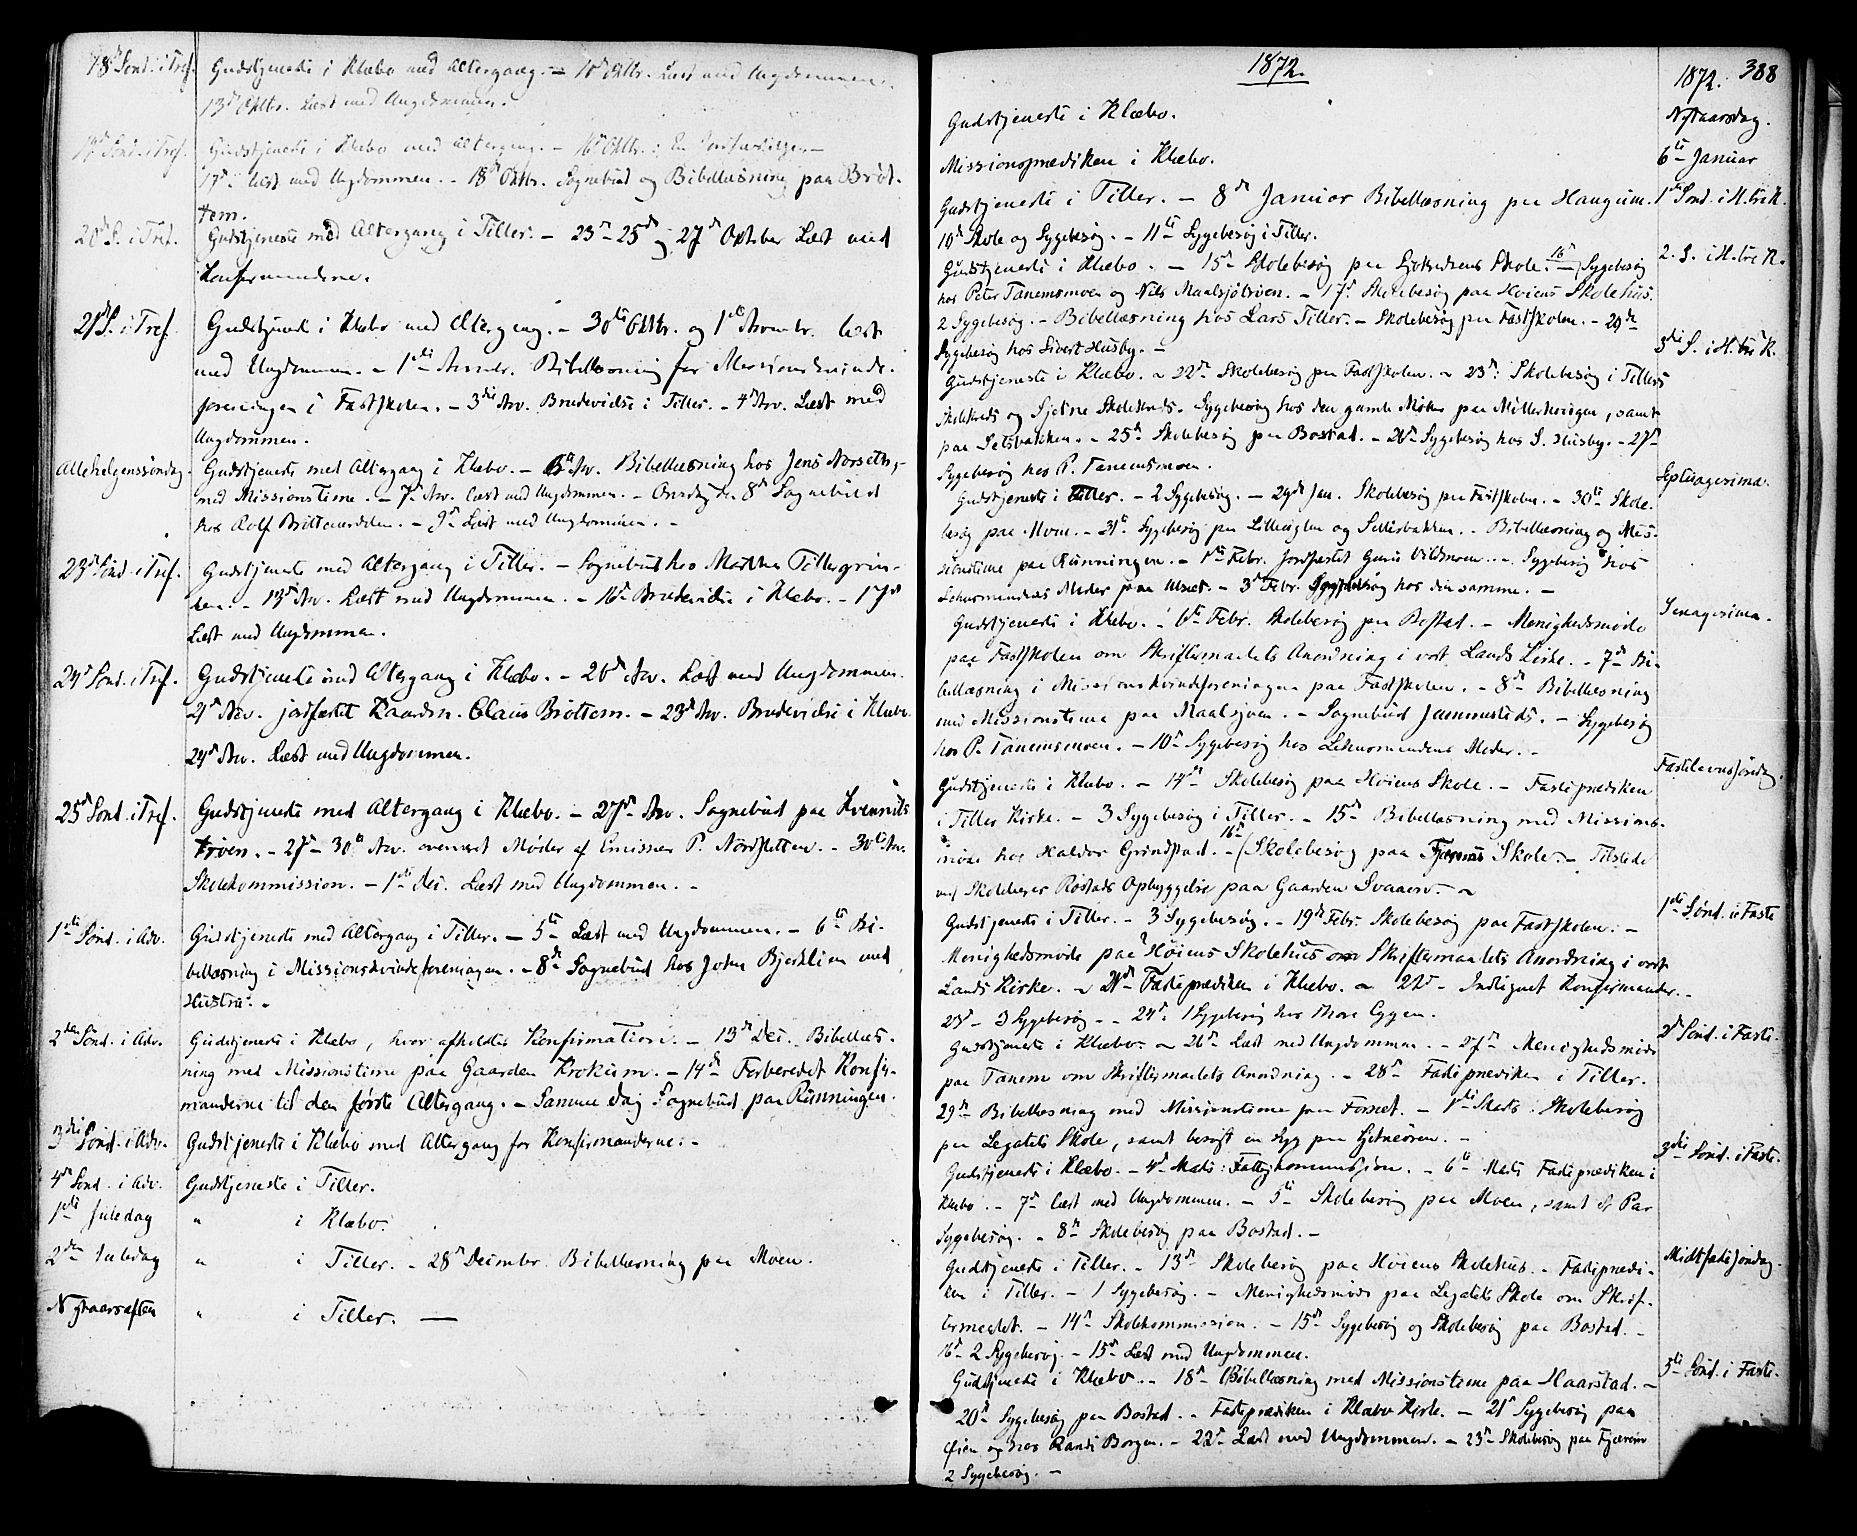 18de Sønd. i Tref. Gudstjeneste i Klæbo med Altergang. – 10de Oktbr. Læst med Ungdommen.
13de Oktbr. Læst med Ungdommen.
19de Sønd. i Tref. Gudstjeneste i Klæbo med Altergang. – 16de Oktbr.: En
17de Læst med Ungdommen. – 18de Oktbr. Sognebud og Bibellæsning paa Bröt-
tem.
20de S. i Tref. Gudstjeneste med Altergang i Tiller. – 23de 25de og 27de Oktober Læst med
Konfirmanderne.
21de S. i Tref. Gudstjeneste i Klæbo med Altergang. – 30te Oktbr. og 1ste Novembr. læst
med Ungdommen. – 1ste Novembr. Bibellæsning for Missionskvinde-
foreningen i Fastskolen. – 3die Nov. Brudevielse i Tiller. – 4de Nov. Læst med
Ungdommen.
Allehelgenssöndag. Gudstjeneste med Altergang i Klæbo. – Nov. Bibellæsning hos Jens Norseth,
med Missionstime. – 7de Nov. læst med Ungdommen. – Onsdag den 8de Sognebud
hos Rolf – 9de Læst med Ungdommen. –
23de Sönd. i Tref. Gudstjeneste med Altergang i Tiller. – Sognebud hos Tillergrin-
den. – 13de Nov. Læst med Ungdommen. – 16de Brudevielse i Klæbo. – 17de
Læst med Ungdommen.
24de Sönd. i Tref. Gudstjeneste med Altergang i Klæbo. – 20de Nov. Læst med Ungdommen.
21de Nov. jordfæstet Gaardm. Claus Bröttem. – 23de Nov. Brudevielse i Klæbo.
24de Nov. Læst med Ungdommen.
25de Sönd. i Tref. Gudstjeneste med Altergang i Klæbo. – 27de Nov. Sognebud paa
tröen. – 27de – 30te Nov. overværet Möder af Emissær P. Nordsletten. – 30te Nov.
Skolekommission. – 1ste Dec. Læst med Ungdommen. –
1ste Sönd. i Adv. Gudstjeneste med Altergang i Tiller. – 5te Læst med Ungdommen. – 6te Bi-
bellæsning i Missionskvindeforeningen. – 8de Sognebud hos John Bjerklien med
Hustru. –
2den Sönd. i Adv. Gudstjeneste i Klæbo, hvor afholdtes Konfirmation. – 13de Dec. Bibellæs-
ning med Missionstime paa Gaarden Krokum. – 14de Forberedet Konfir-
manderne til den förste Altergang. – Samme Dag Sognebud paa Rönningen.
3die Sönd. i Adv. Gudstjeneste i Klæbo med Altergang for Konfirmanderne. –
4de Sönd. i Adv. Gudstjeneste i Tiller.
1ste Juledag " i Klæbo.
2den Juledag " i Tiller. – 28de Decembr. Bibellæsning paa Moen.
Nytaarsaften " i Tiller. —
1872.
1872. 388
Gudstjeneste i Klæbo. Nytaarsdag.
Missionsprædiken i Klæbo. 6te Januar
Gudstjeneste i Tiller. – 8de Januar Bibellæsning paa Haugum. 1ste Sönd. i H. tre K.
10de Skole og Sygebesög. – 11te Sygebesög i Tiller.
Gudstjeneste i Klæbo. – 15de Skolebesög paa Skole. – 16de Sygebesög 2. S. i H. tre K.
hos Peter Tanemsmoen og Nils Maalsjötröen. – 17de Skolebesög paa Höiens Skolehus.
2 Sygebesög. – Bibellæsning hos Lars Tiller. – Skolebesög paa Fastskolen. – 20de
Sygebesög hos Sivert Husby. –
Gudstjeneste i Klæbo. – 22de Skolebesög paa Fastskolen. – 23de: Skolebesög i Tillers 3die S. i H. tre K.
Skolekreds og Sjetne Skolekreds. Sygebesög hos den gamle Moder paa Möllerhougen, samt
paa Setsbakken. – 25de Skolebesög paa Bostad. – 26de Sygebesög hos S. Husby. – 27de
Sygebesög hos P. Tanemsmoen.
Gudstjeneste i Tiller. – 2 Sygebesög. – 29de Jan. Skolebesög paa Fastskolen. – 30te Skole- Septuagesima.
besög paa Moen. – 31te Sygebesög paa Lilleuglen og Sellesbakken. – Bibellæsning og Mis-
sionstime paa Rönningen. – 1ste Febr. Jordfæstet Guru Vildmoen. – Sygebesög hos
Lehnsmandens Moder paa Ulset. – 3die Febr. Sygebesög hos den samme. –
Gudstjeneste i Klæbo. – 6te Febr. Skolebesög paa Bostad. – Menighedsmöde Sexagesima.
paa Fastskolen om Skriftemaalets Anordning i vort Lands Kirke. – 7de Bi-
bellæsning i Missionskvindeforeningen paa Fastskolen. – 8de Bibellæsning
med Missionstime paa Maalsjöen. – Sognebud sammesteds. – Sygebesög
hos P. Tanemsmoen. – 10de Sygebesög hos Lehnsmandens Moder. –
Gudstjeneste i Klæbo. – 14de Skolebesög paa Höiens Skole. – Fasteprædiken Fastelavnssöndag.
i Tiller Kirke. – 3 Sygebesög i Tiller. – 15de Bibellæsning med Missions-
möde hos Haldor Grindstad. – 16de (Skolebesög paa Skole. – Tilstede
ved Skolelærer Röstads Opbyggelse paa Gaarden Svaaen. –
Gudstjeneste i Tiller. – 3 Sygebesög. – 19de Febr. Skolebesög paa Fastskolen. – 1ste Sönd. i Faste
Menighedsmöde paa Höiens Skolehus om Skriftemaalets Anordning i vort
Lands Kirke. – 21de Fasteprædiken i Klæbo. – 22de – Indtegnet Konfirmander. –
23de – 3 Sygebesög. – 24de 1 Sygebesög hos Thore Eggen.
Gudstjeneste i Klæbo. – 26de Læst med Ungdommen. – 27de Menighedsmöde 2den Sönd. i Faste.
paa Tanem om Skriftemaalets Anordning. – 28de Fasteprædiken i Tiller.
29de Bibellæsning med Missionstime paa Forset. – 1ste Marts: Skolebesög
paa Legatets Skole, samt besögt en Syg paa Gjetneören. –
Gudstjeneste i Klæbo. – 4de Marts: Fattigkommission. – 6te Marts Fasteprædiken i 3die Sönd. i Faste.
Klæbo. – 7de læst med Ungdommen. – 5te Skolebesög paa Moen, samt et Par
Sygebesög. – 8de Skolebesög paa Bostad. –
Gudstjeneste i Tiller. – 13de Skolebesög paa Höiens Skolehus. – Fasteprædi- Midtfastesöndag.
ken i Tiller. – 1 Sygebesög. – Menighedsmöde paa Legatets Skole om Skrif-
temaalet. – 14de Skolekommission. – 15de Sygebesög og Skolebesög paa Bostad. –
16de 2 Sygebesög. – 15de Læst med Ungdommen.
Gudstjeneste i Klæbo. – 18de Bibellæsning med Missionstime paa Haarstad. – 5te Sönd. i Faste.
20de Sygebesög paa Bostad. – Fasteprædiken i Klæbo Kirke. – 21de Sygebesög paa
og hos Randi Borgen. – 22de Læst med Ungdommen. – 23de Skolebesög paa Fjæremo
2 Sygebesög. –